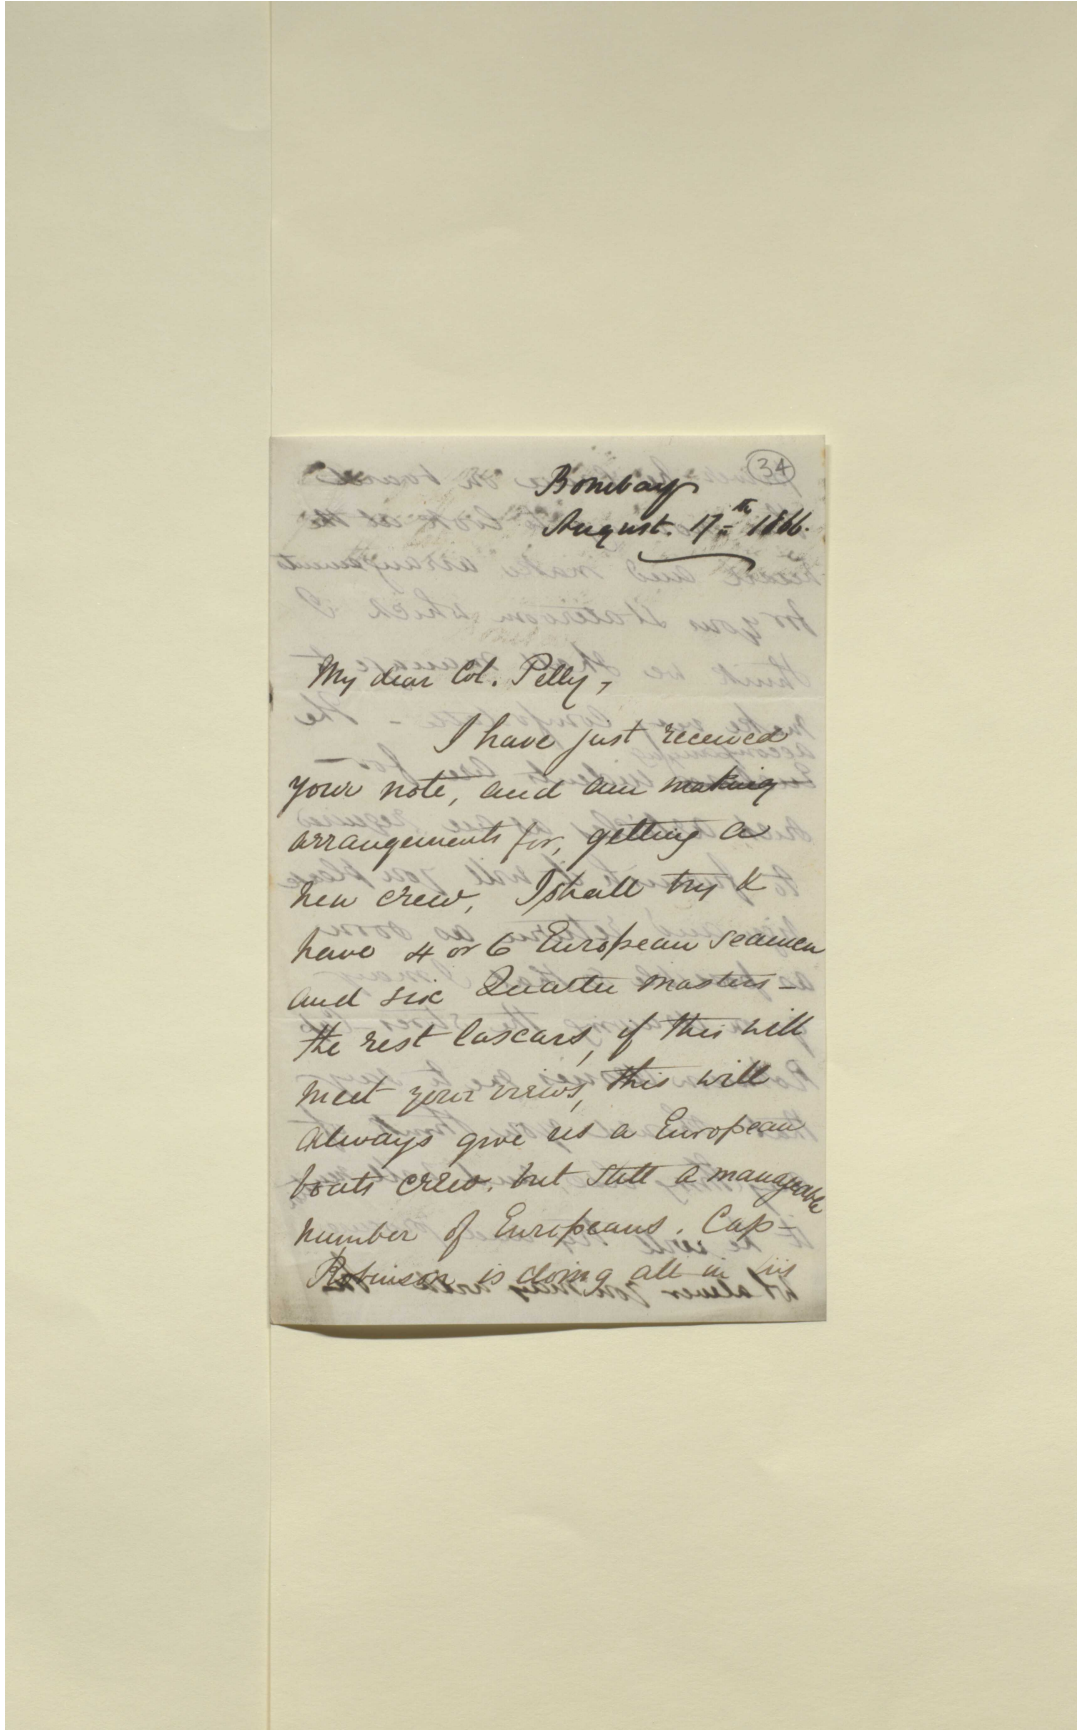 34
Bombay
August. 17th 1866.
My dear Col. Pelly,
I have just received
your note, and am making
arrangements for, getting a
new crew, I shall try to
have 4 or 6 European seamen
and six Quarter masters -
the rest lascars, if this will
meet your views, this will
always give us a European
boats crew. but still a manageable
number of Europeans. Cap
Robinson is doing all in his